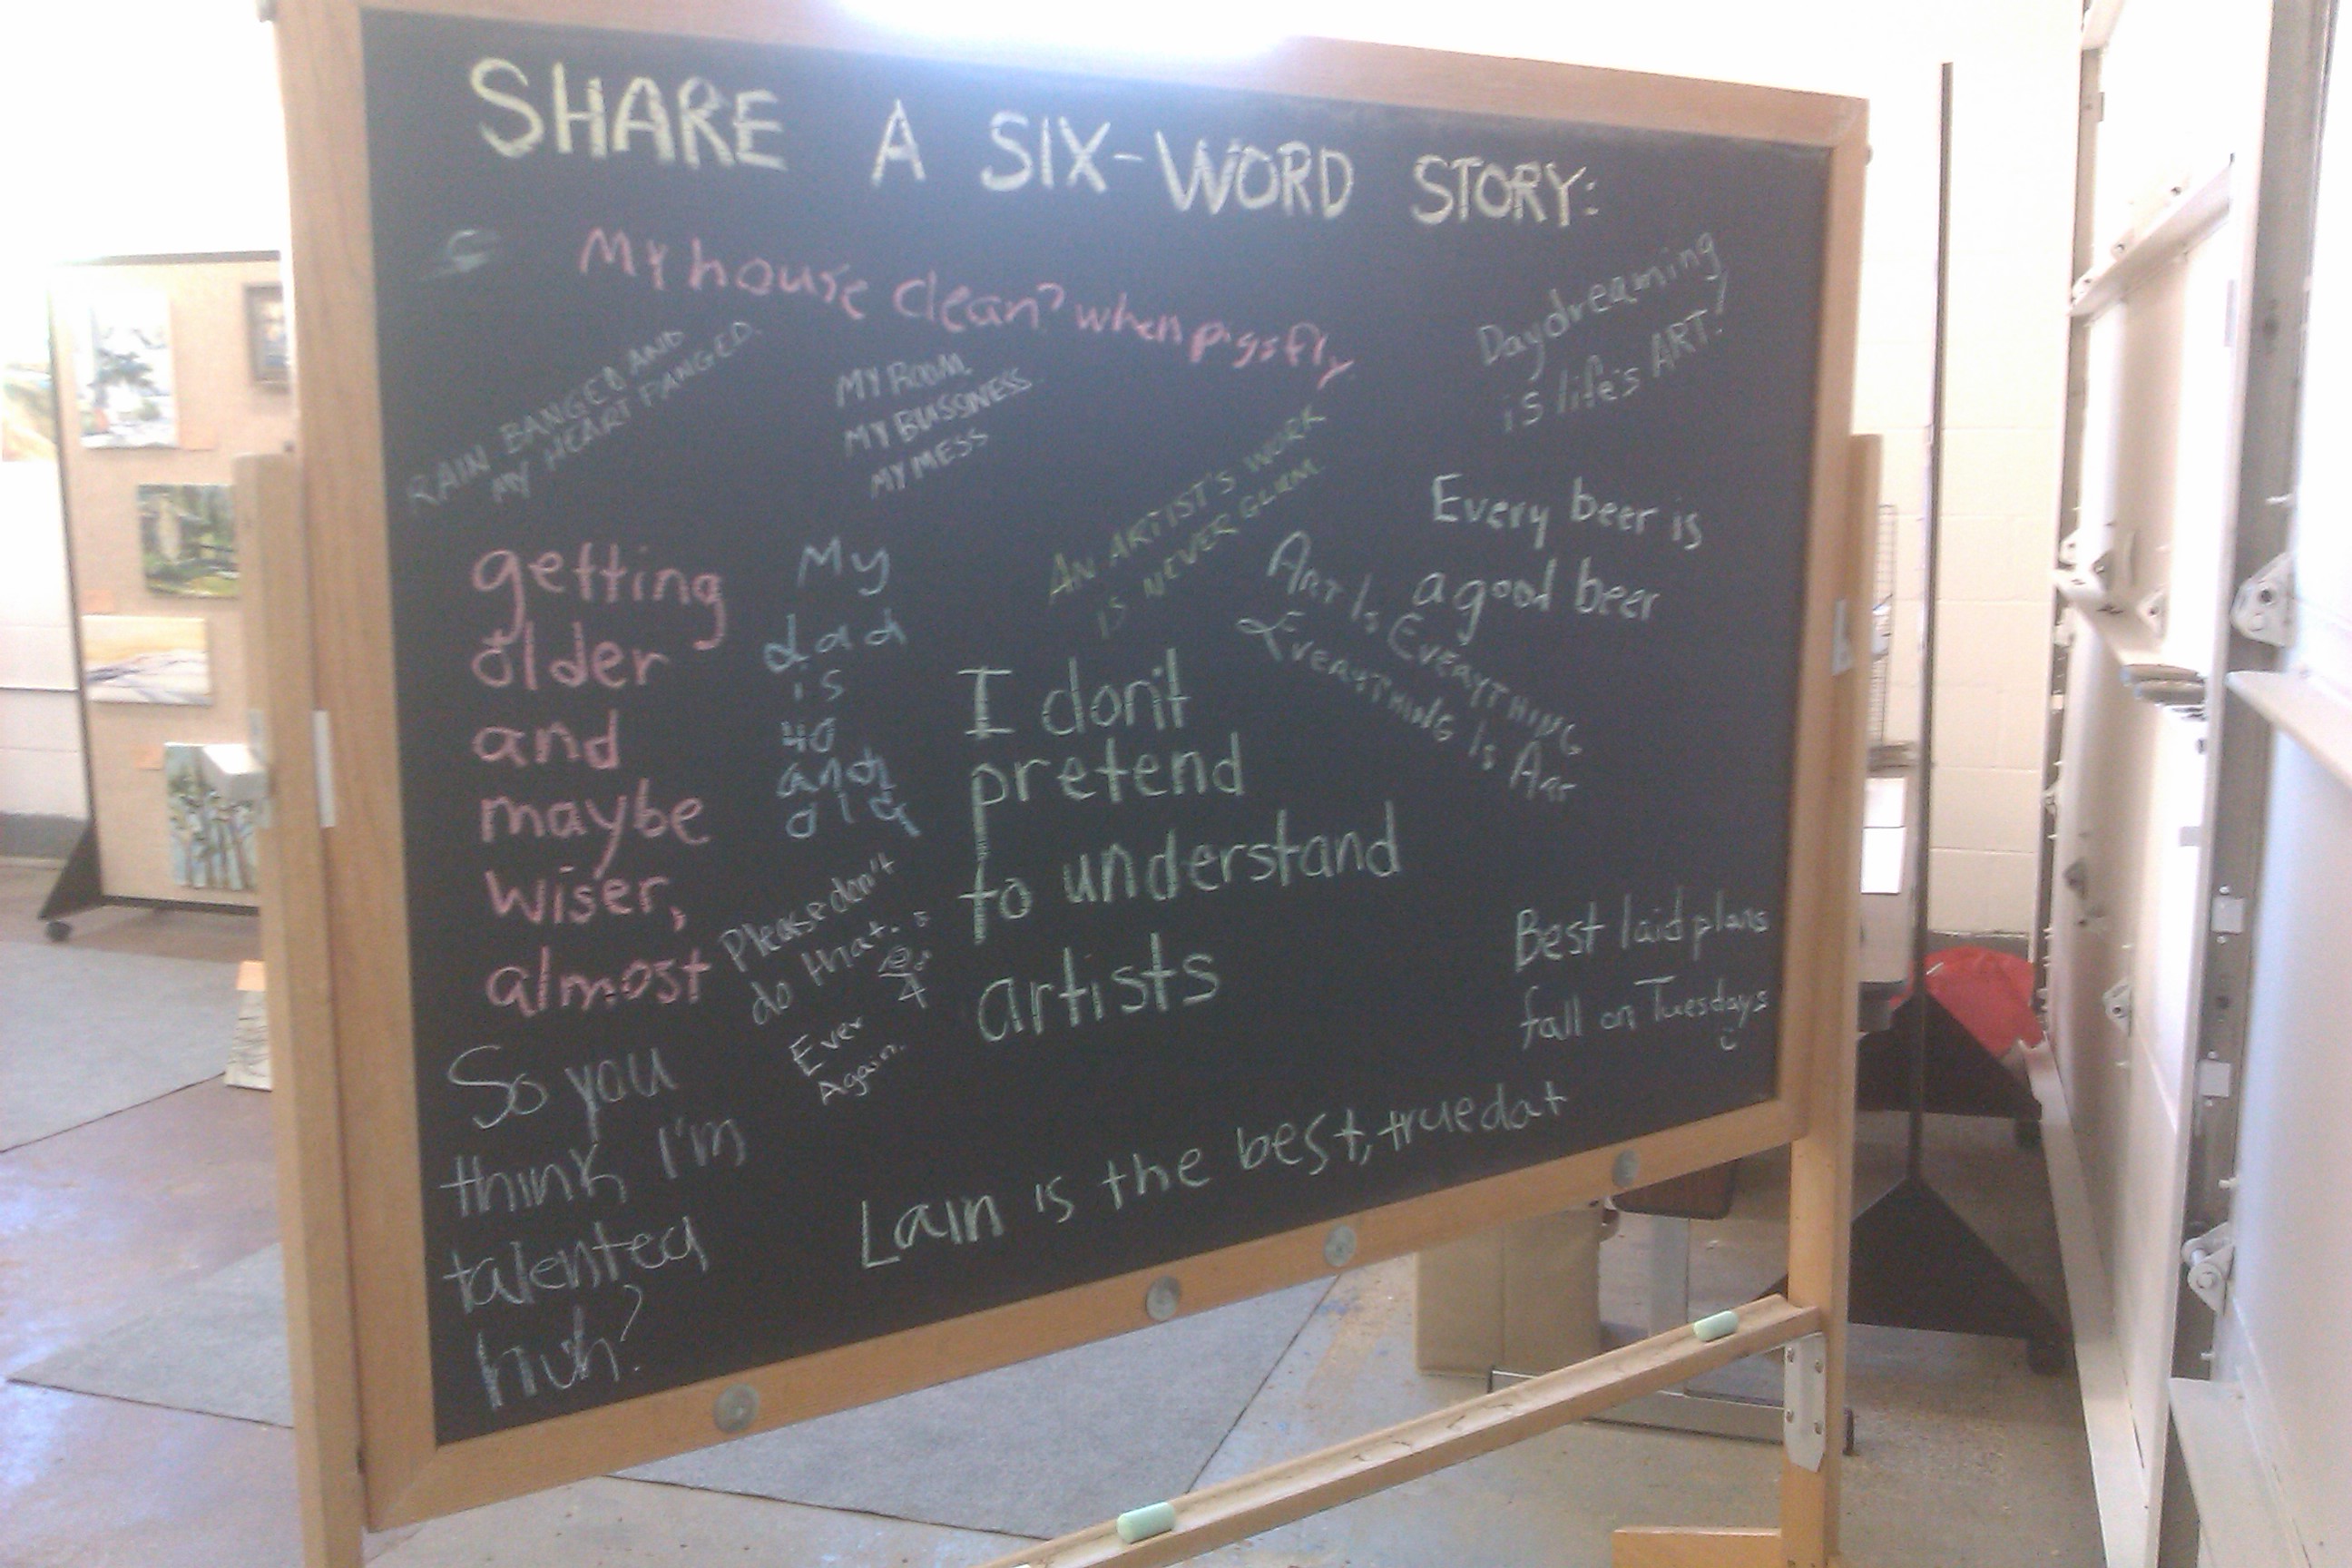 SHARE A SIX-WORD STORY:
My house clean? when pigs fly
RAIN BANGED AND
MY HEART PANGED.
MY ROOM
MY BUSSINESS
MY MESS
Daydreaming
is life's ART!
AN ARTIST'S WORK
IS NEVER
Every beer is
a good beer
ART IS EVERYTHING
EVERYTHING IS ART
getting
older
and
maybe
wiser,
almost
My
dad
is
40
and
old
I don't
pretend
to understand
artists
Please don't
do that..
Ever
Again.
Best laid plans
fall on Tuesdays
So you
think I'm
talented
huh?
Lain is the best, true dat